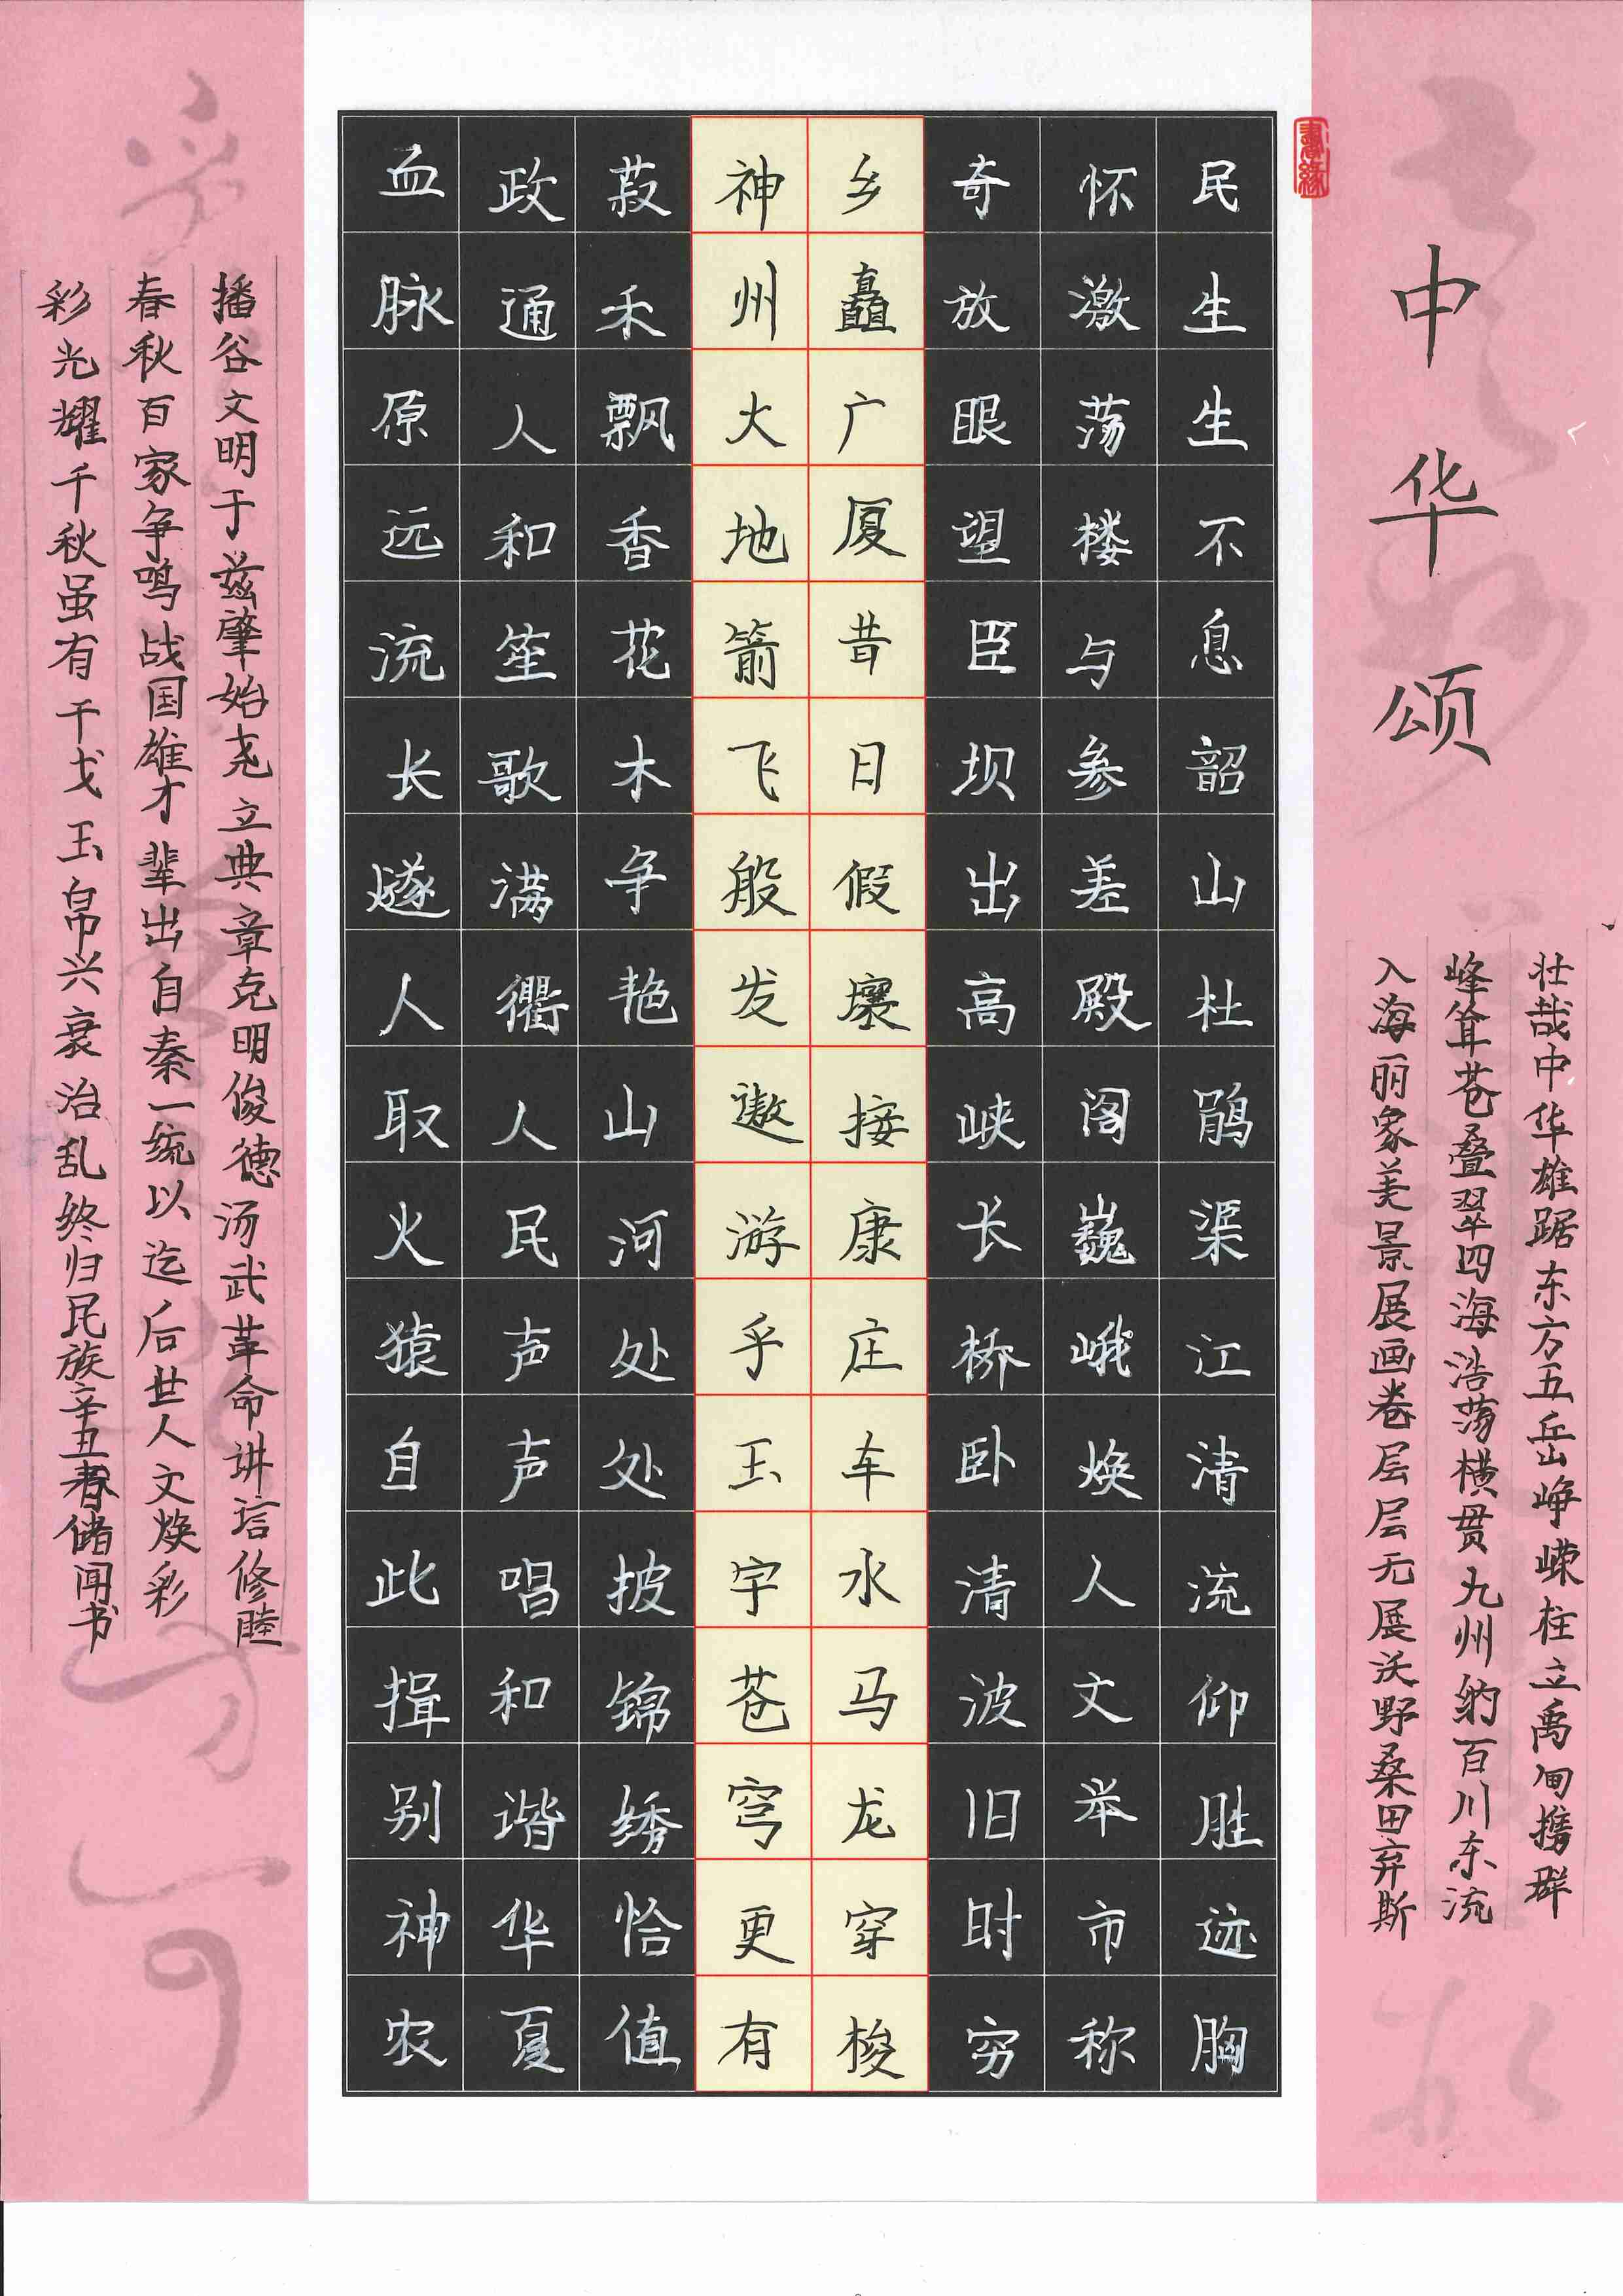 中华颂
壮哉中华雄踞东方五岳峥嵘柱立禹甸携群
峰耸苍叠翠四海浩荡横贯九州纳百川东流
入海丽象美景展画卷层层无展沃野桑田弃斯
書緣
民生生不息韶山杜鹃渠江清流仰胜迹胸
怀激荡楼与参差殿阁巍峨焕人文举市称
奇放眼望臣坝出高峡长桥卧清波旧时穷
乡矗广厦昔日假壤接康庄车水马龙穿梭
神州大地箭飞般发遨游乎玉宇苍穹更有
菽禾飘香花木争艳山河处处披锦绣恰值
政通人和笙歌满衢人民声声唱和谐华夏
血脉原远流长燧人取火猿自此揖别神农
播谷文明于兹肇始尧立典章克明俊德汤武革命讲信修睦
春秋百家争鸣战国雄才辈出自秦一统以迄后世人文焕彩
彩光耀千秋虽有干戈玉帛兴衰治乱终归民族辛丑春储闻书